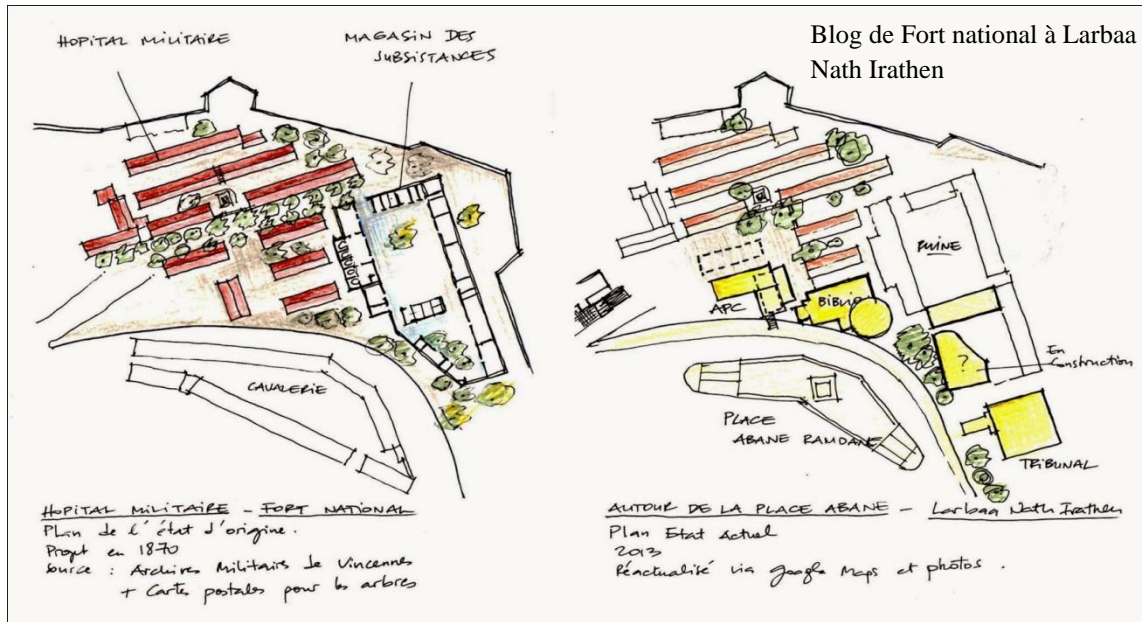 Blog de Fort national à Larbaa
Nath Irathen
HOPITAL MILITAIRE
MAGASIN DES
SUBSISTANCES
CAVALERIE
HOPITAL MILITAIRE - FORT NATIONAL
Plan de l'état d'origine.
Projet en 1870
Source : Archives Militaires de Vincennes
+ Cartes postales pour les arbres
RUINE
APC
BIBLIO
?
En
Construction
PLACE
ABANE RAMDANE
TRIBUNAL
AUTOUR DE LA PLACE ABANE - Larbaa Nath Irathen
Plan Etat Actuel
2013
Réactualisé via google Maps et photos.